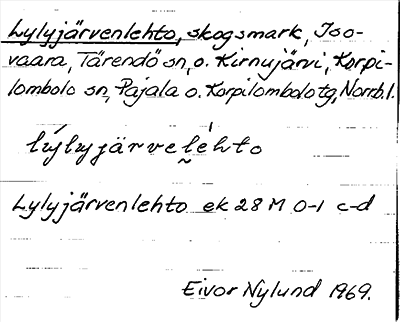 Lylyjärvenlehto, skogsmark, Iso-
vaara, Tärendö sn, o. Kirnujärvi, Korpi-
lombolo sn, Pajala o. Korpilombolo tg, Norrb.l.
lýlyjärvelèhto
Lylyjärvenlehto ek 28 M 0-1 c-d
Eivor Nylund 1969.